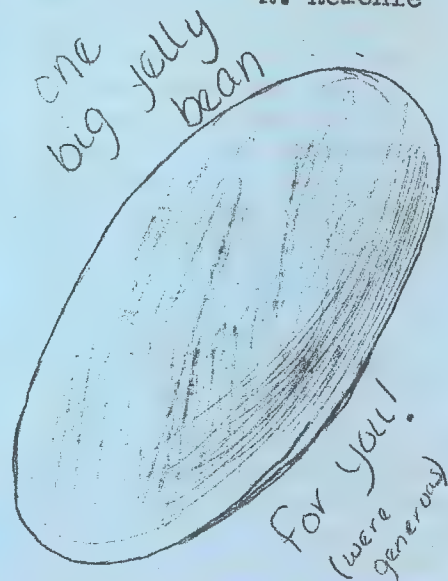 one
big jelly
bean
for you!
(were
generous)